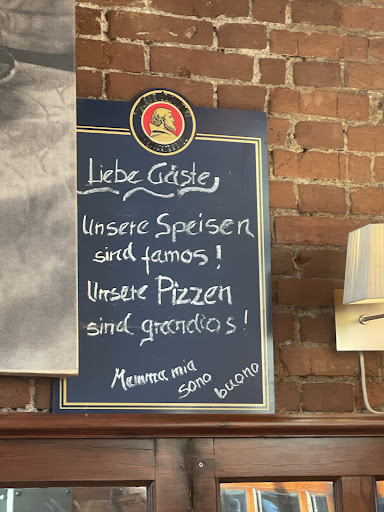 Liebe Gäste,
Unsere Speisen
sind famos!
Unsere Pizzen
sind grandios!
Mamma mia
sono buono